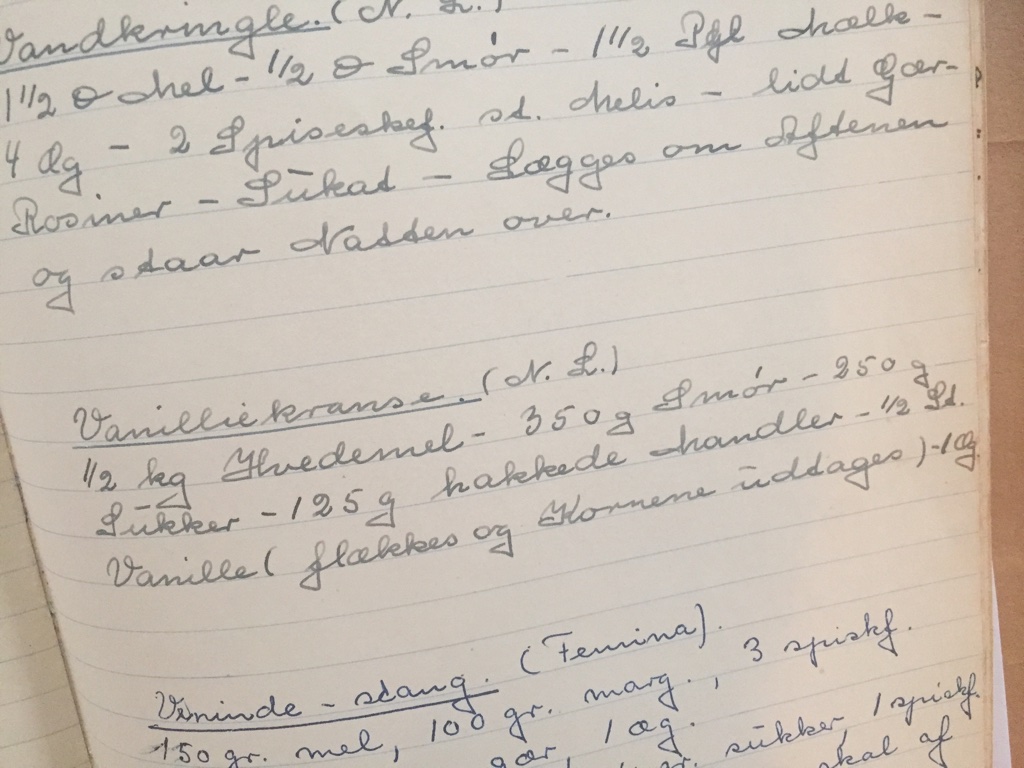 Vandkringle. (N. L.)
1 1/2 ℔ Mel - 1/2 ℔ Smør - 1 1/2 Pgl Mælk -
4 Æg - 2 Spiseskef. st. Melis - lidt Gær -
Rosiner - Sūkat - Lægges om Aftenen
og staar Natten over.
Vanilliekranse. (N. L.)
1/2 kg Hvedemel - 350 g Smør - 250 g
Sūkker - 125 g hakkede Mandler - 1/2 St.
Vanille ( flækkes og Kornene ūdtages ) - 1 Æg.
stang. (Femina).
150 gr. mel, 100 gr. marg., 3 spiskf.
gær, 1 æg.
sūkker, 1 spiskf.
skal af